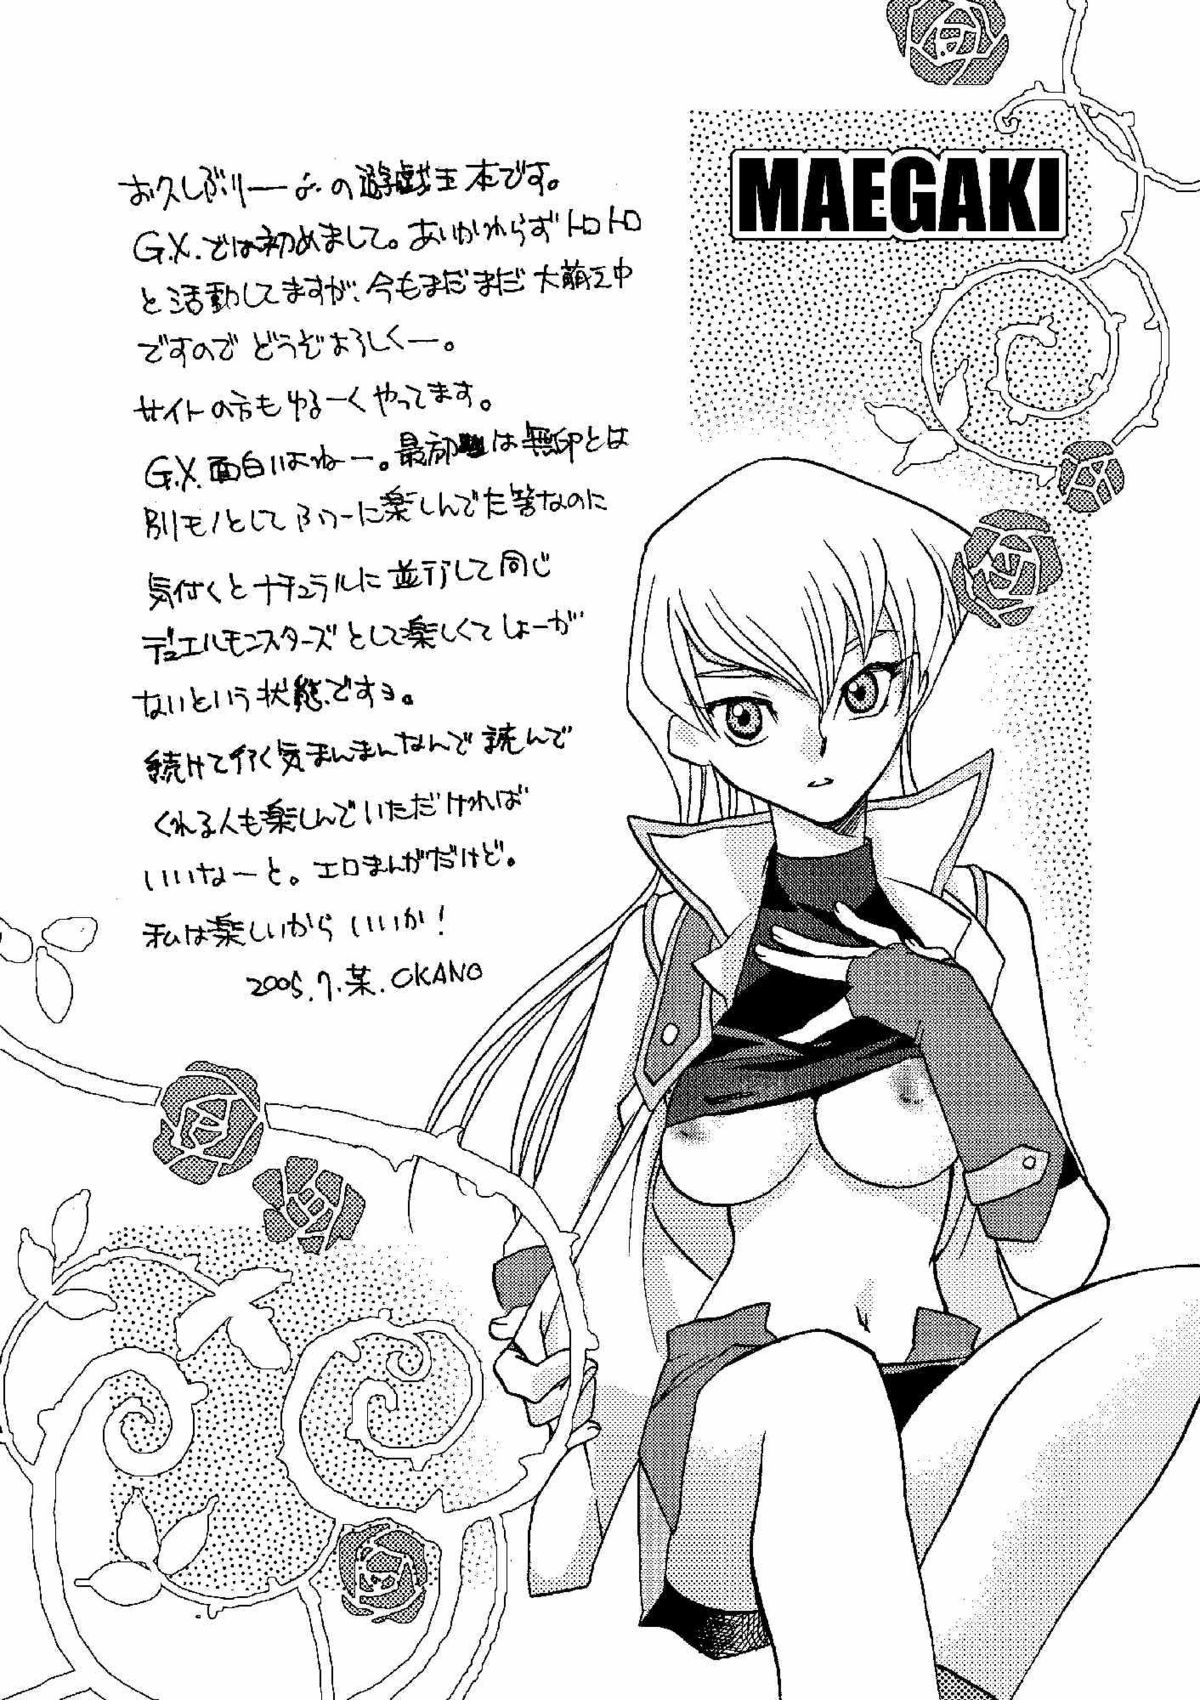 MAEGAKI
お久しぶりーっの遊戯王本です。
G.X.では初めまして。あいかわらずトロトロ
と活動してますが、今もまだまだ大萌え中
ですのでどうぞよろしくー。
サイトの方もゆるーくやってます。
G.X.面白いよねー。最初は無印とは
別モノとしてふつーに楽しんでた筈なのに
気付くとナチュラルに並行して同じ
デュエルモンスターズとして楽しくてしょーが
ないという状態ですョ。
続けて行く気まんまんなんで読んで
くれる人も楽しんでいただければ
いいなーと。エロまんがだけど。
私は楽しいからいいか!
2005.7.某.OKANO